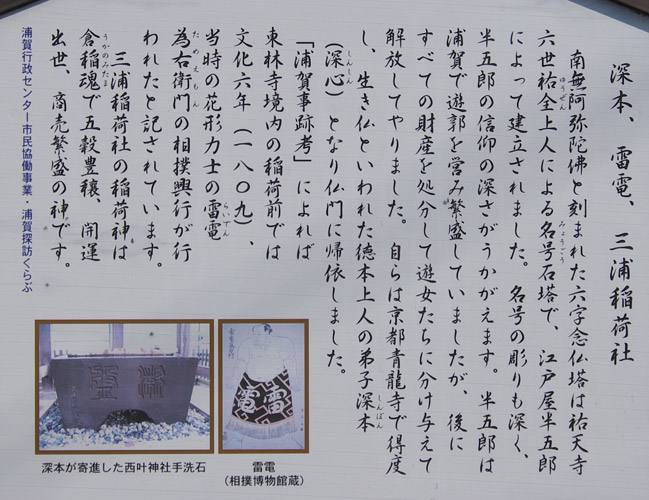 深本、雷電、三浦稲荷社
南無阿弥陀佛と刻まれた六字念仏塔は祐天寺
六世祐全上人による名号石塔で、江戸屋半五郎
ゆうぜん
みょうごう
によって建立されました。名号の彫りも深く、
半五郎の信仰の深さがうかがえます。半五郎は
浦賀で遊郭を営み繁盛していましたが、後に
すべての財産を処分して遊女たちに分け与えて
解放してやりました。自らは京都青龍寺で得度
し、生き仏といわれた徳本上人の弟子深本
しんぽん
(深心)となり仏門に帰依しました。
しんしん
「浦賀事跡考」によれば
東林寺境内の稲荷前では
文化六年(一八〇九)、
当時の花形力士の雷電
らいでん
為右衛門の相撲興行が行
ためえもん
われたと記されています。
三浦稲荷社の稲荷神は
倉稲魂で五穀豊穣、開運
うかのみたま
出世、商売繁盛の神です。
浦賀行政センター市民協働事業・浦賀探訪くらぶ
雷電
深本が寄進した西叶神社手洗石
雷電
(相撲博物館蔵)